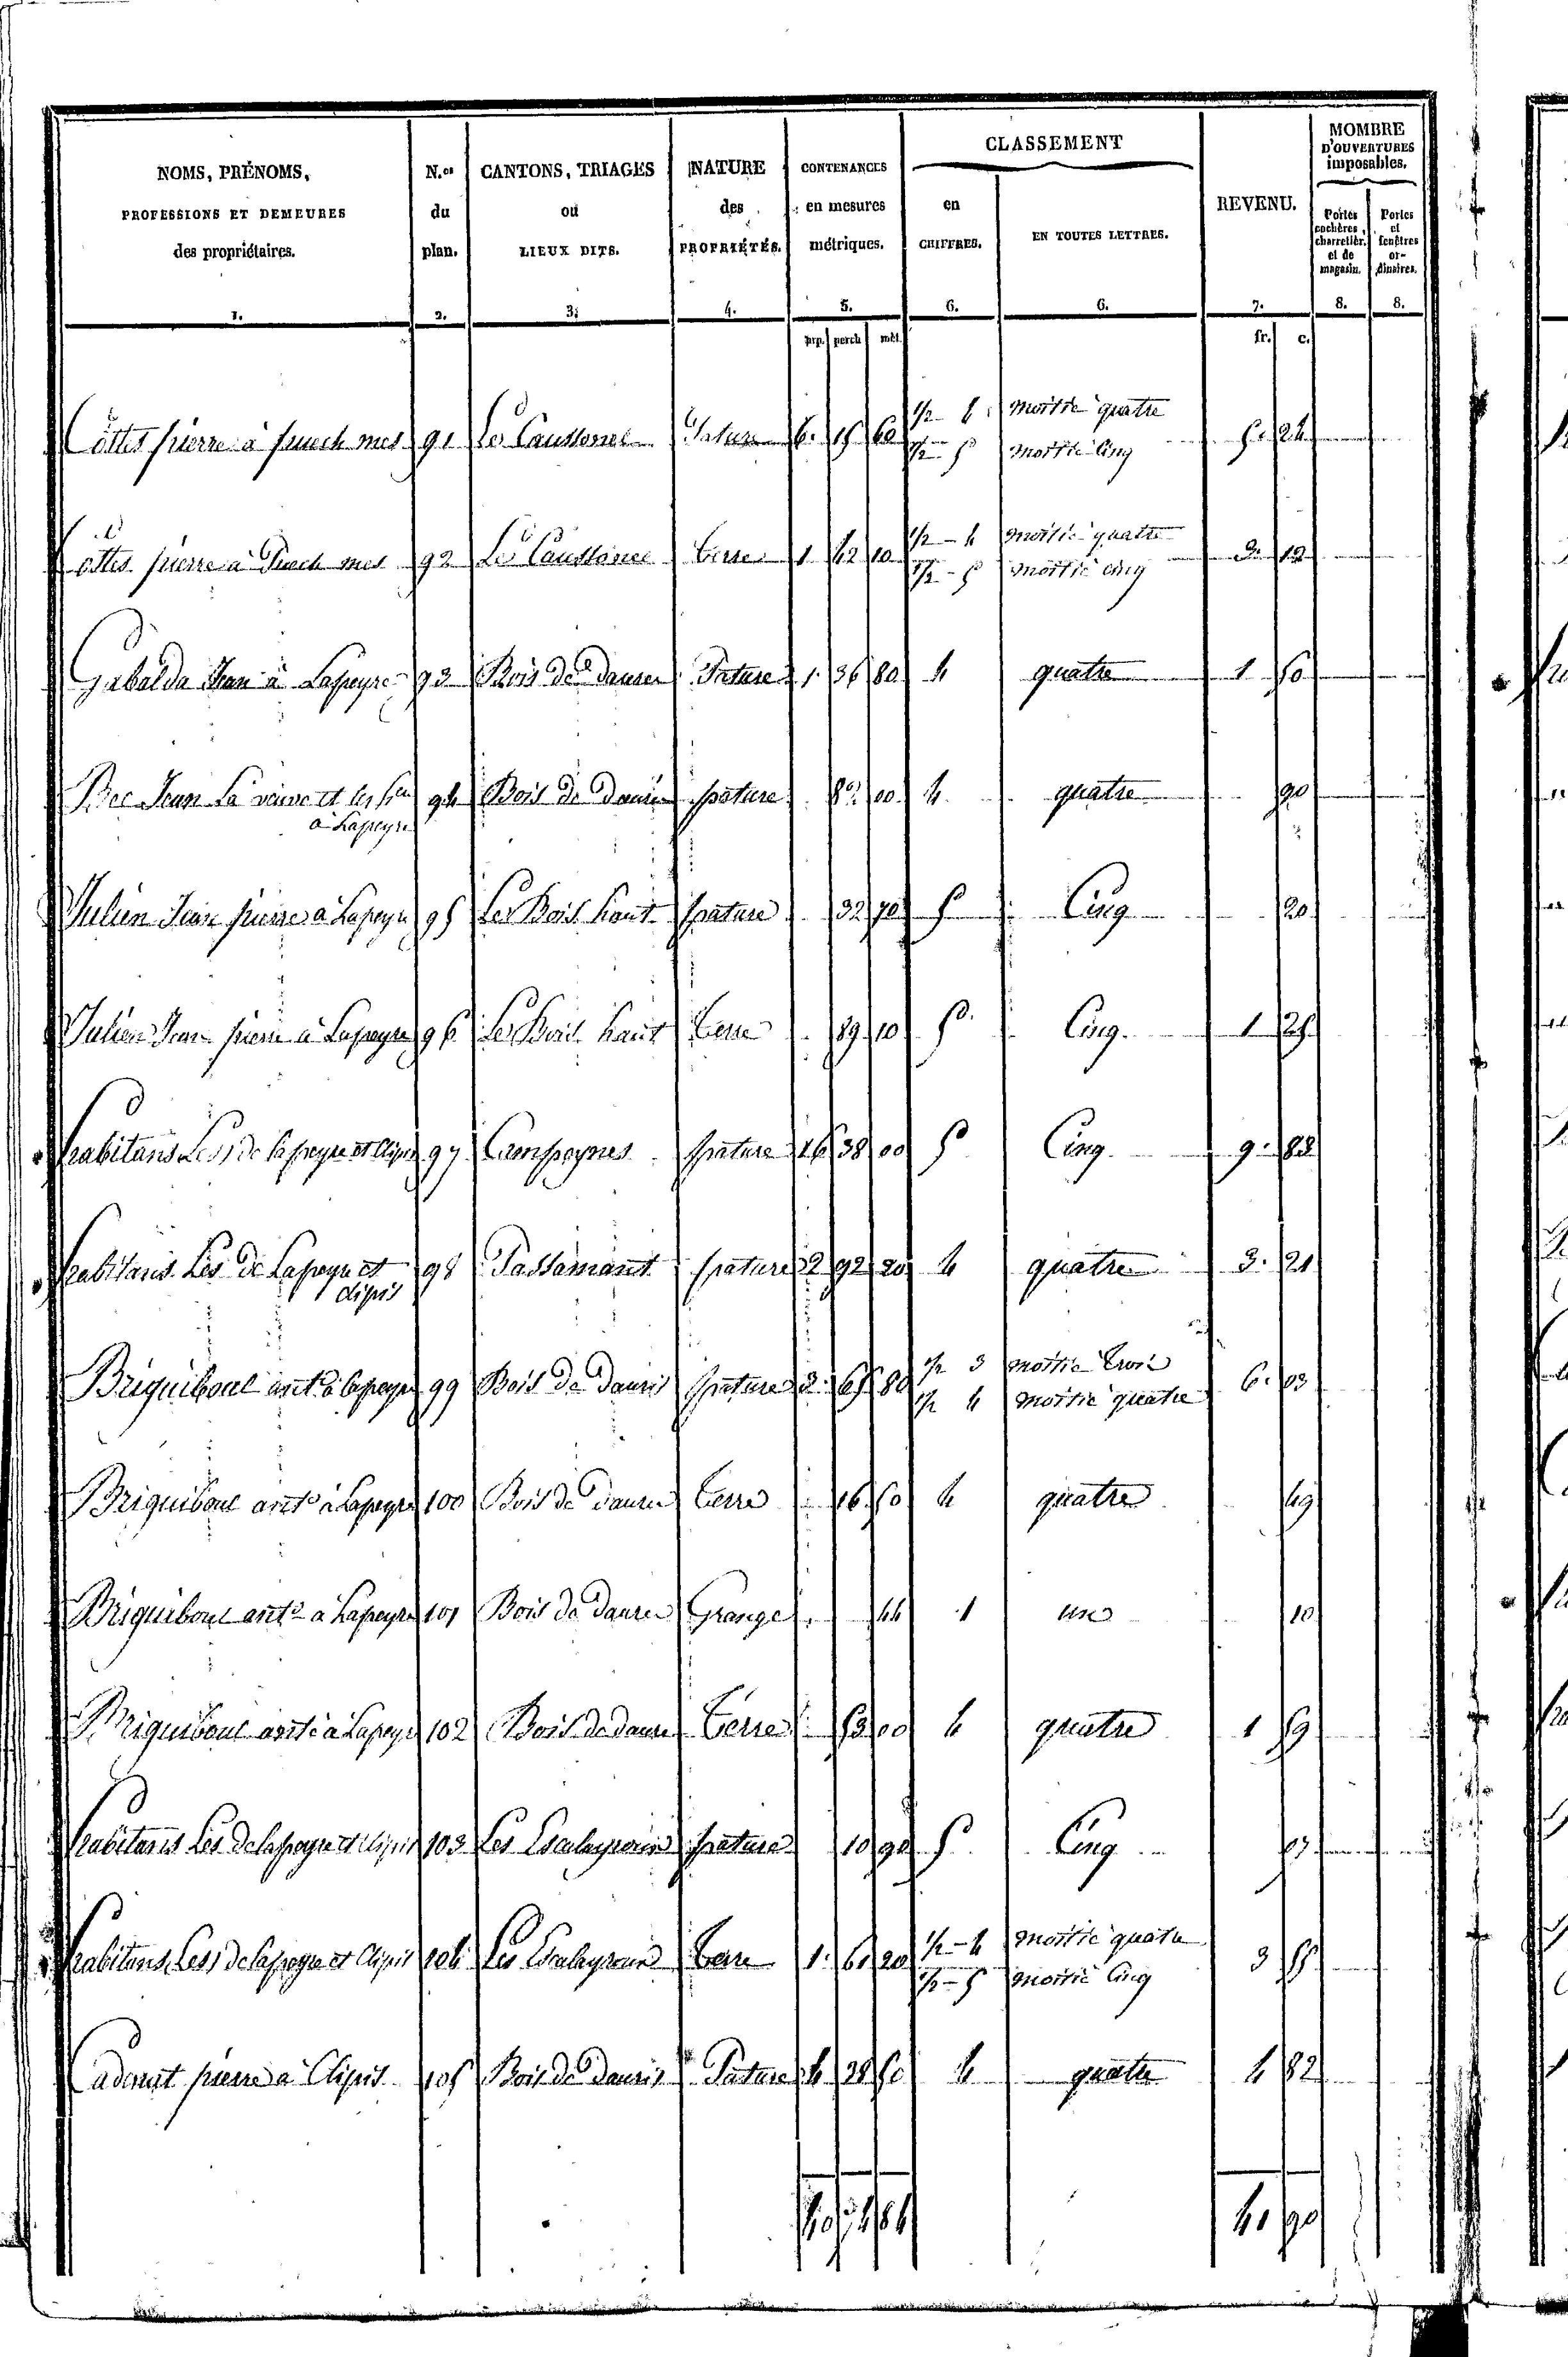 NOMS, PRÉNOMS, PROFESSIONS ET DEMEURES des propriétaires. 1.
N.os du plan. 2.
CANTONS, TRIAGES ou LIEUX DITS. 3.
NATURE des PROPRIÉTÉS. 4.
CONTENANCES en mesures métriques. 5.
CLASSEMENT
en CHIFFRES. 6.
EN TOUTES LETTRES. 6.
REVENU. 7.
MOMBRE D'OUVERTURES imposables.
Portes cochères, charretièr. et de magasin. 8.
Portes et fenêtres ordinaires. 8.
arp. perch. mèt. fr. c.
Côttes pierre à puech mes 91 Les Caussonel Pature 6. 15 60 1/2 - 4 moitié quatre 5. 24
1/2 - 5 moitié Cinq
Côttes pierre à Puech mes 92 Les Caussonel terre 1 62 10 1/2 - 4 moitié quatre 3. 12
1/2 - 5 moitié cinq
Gabalda Jean à Lapeyre 93 Bois de daures Pature 1. 36 80 4 quatre 1 50
Bec Jean La veuve et les 94 Bois de Daures pature 82 00 4 quatre 90
à Lapeyre
Julien Jean pierre à Lapeyre 95 Les Bois haut pature 32 70 5 Cinq 20
Julien Jean pierre à Lapeyre 96 Les Bois haut terre 89 10 5 Cinq. 1 25
habitans Les) de lapeyre et Clipis 97 Campeynes pature 16 38 00 5 Cinq. 9. 83
habitans Les de Lapeyre et 98 Passamant pature 2 92 20 4 quatre 3. 21
clipis
Briguiboul ant.e à lapeyre 99 Bois de dauris pature 3. 65 80 1/2 3 moitié trois 6. 03
1/2 4 moitié quatre
Briguiboul ant.e à Lapeyre 100 Bois de daures terre 16. 50 4 quatre 49
Briguiboul ant.e à Lapeyre 101 Bois de daures Grange 44 1 une 10
Briguiboul ant.e à Lapeyre 102 Bois de daures terre 53 00 4 quatre 1 59
habitans Les de lapeyre et clipis 103 Les pature 10 90 5 Cinq 07
habitans Les) de lapeyre et Clipis 104 Les terre 1. 61 20 1/2 - 4 moitié quatre 3 55
1/2 - 5 moitié Cinq
Cadenat pierre à Clipis 105 Bois de dauris Pature 4 38 50 4 quatre 4 82
41 90